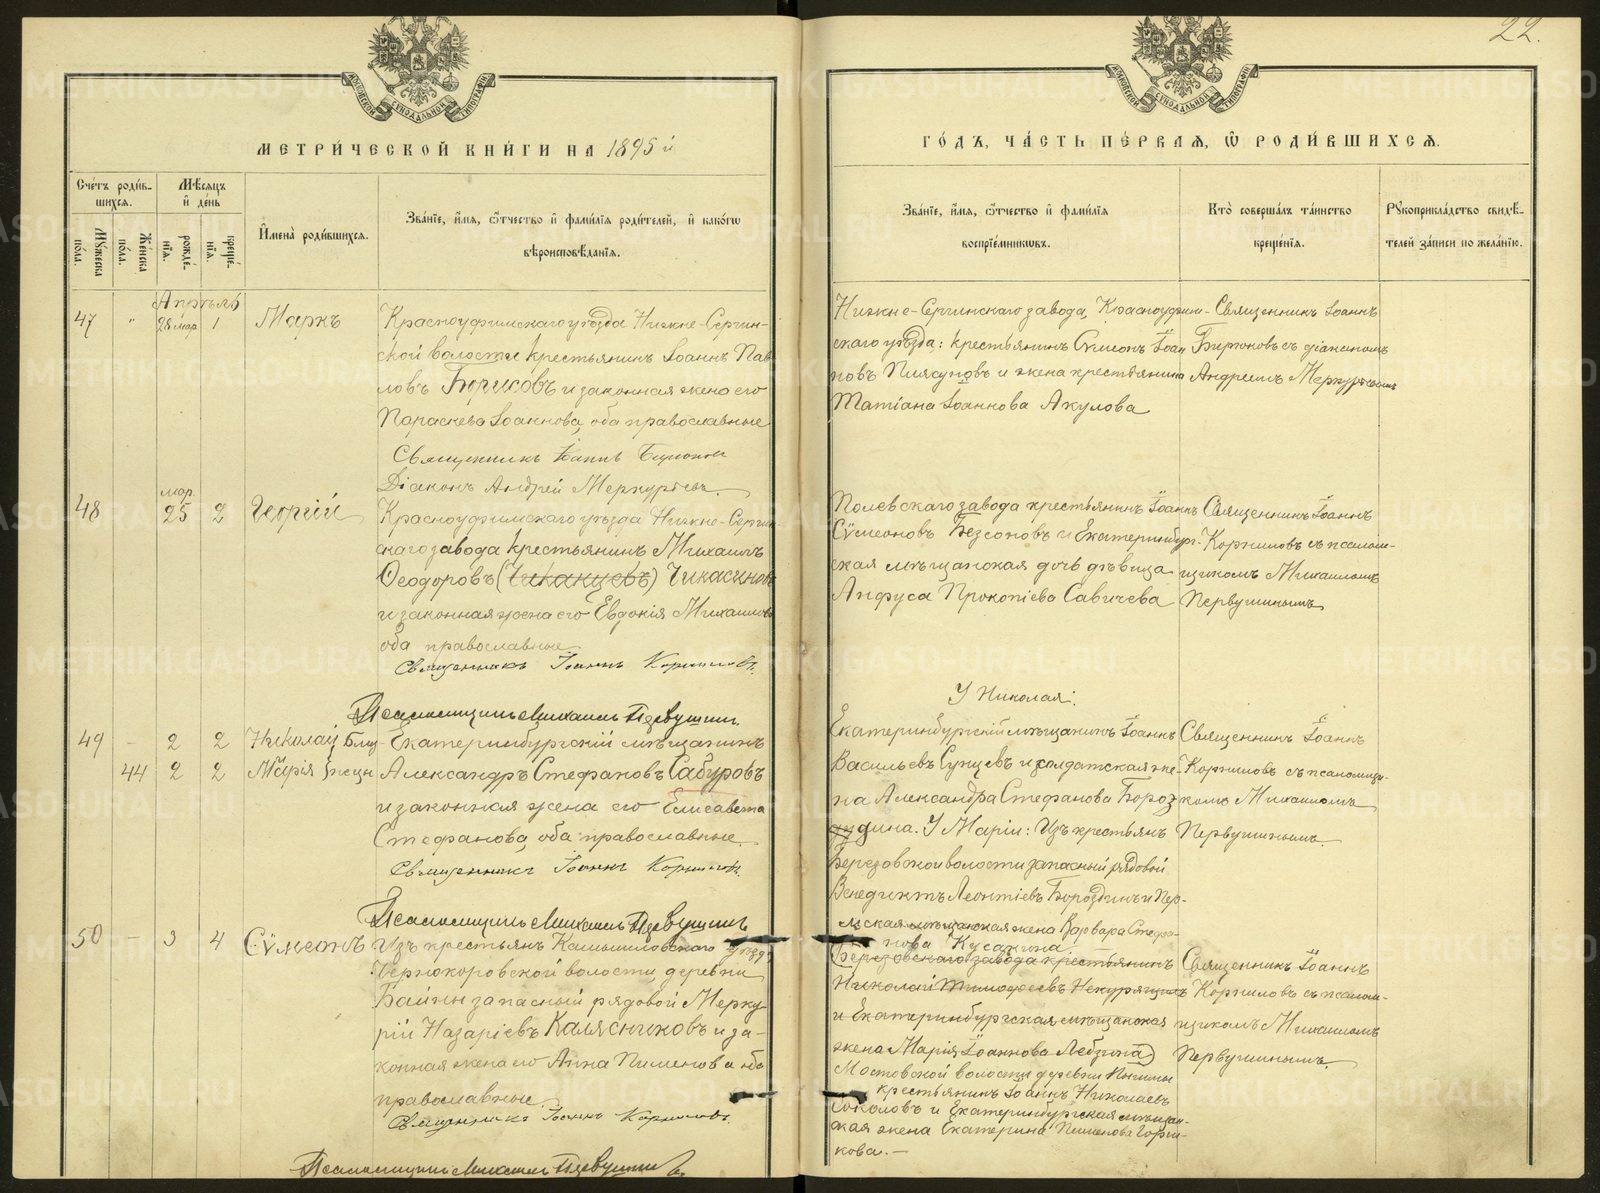 22.
МЕТРИ́ЧЕСКОЙ КНИ́ГИ НА 1895 й
ГО́ДЪ, ЧА́СТЬ ПЕ́РВАЯ, Ѿ РОДИ́ВШИХСЯ.
Сче́тъ роди́вшихся.
Мѣ́сяцъ и҆ де́нь
Мꙋ́жеска по́ла.
Же́нска по́ла.
рожде́нїѧ.
креще́нїѧ.
И҆мена̀ роди́вшихсѧ.
Зва́нїе, и҆́мѧ, ѻ҆́тчество и҆ фами́лїѧ роди́телей, и҆ како́гѡ вѣроисповѣ́данїѧ.
Зва́нїе, и҆́мѧ, ѻ҆́тчество и҆ фами́лїѧ воспрїе́мникѡвъ.
Кто̀ соверша́лъ та́инство креще́нїѧ.
Рꙋкоприкла́дство свидѣ́телей за́писи по жела́нїю.
Апрѣль
47 " 28 мар 1 Маркъ
Красноуфимскаго уѣзда Нижне-Сергин-
ской волости крестьянинъ Іоаннъ Пав
ловъ Борисовъ и законная жена его
Параскева Іоаннова, оба православные
Священникъ Іоаннъ Бирюковъ
Діаконъ Андрей Меркурьевъ.
Нижне-Сергинскаго завода, Красноуфим-
скаго уѣзда: крестьянинъ Сѵмеонъ Іоан
новъ Плясуновъ и жена крестьянина
Татіана Іоаннова Акулова
Священникъ Іоаннъ
Бирюковъ съ діакономъ
Андреемъ Меркурьевымъ
мар.
48 25 2 Георгій
Красноуфимскаго уѣзда Нижне-Сергин
скаго завода крестьянинъ Михаилъ
Ѳеодоровъ (Чиканцевъ) Чикасиновъ
и законная жена его Евдокія Михаилова
оба православные
Священникъ Іоаннъ Корниловъ.
Псаломщикъ Михаилъ Первушинъ.
Полевскаго завода крестьянинъ Іоаннъ
Сѵмеоновъ Безсоновъ и Екатеринбург-
ская мѣщанская дочь дѣвица
Анфуса Прокопіева Савичева
Священникъ Іоаннъ
Корниловъ съ псалом-
щикомъ Михаиломъ
Первушинымъ
49 - 2 2 Николай Близ-
44 2 2 Марія нецы
Екатеринбургскій мѣщанинъ
Александръ Стефановъ Сабуровъ
и законная жена его Елисавета
Стефанова, оба православные.
Священникъ Іоаннъ Корниловъ.
Псаломщикъ Михаилъ Первушинъ
У Николая:
Екатеринбургскій мѣщанинъ Іоаннъ
Васильевъ Сунцевъ и солдатская же-
на Александра Стефанова Бороз
дина. У Маріи: Изъ крестьянъ
Березовской волости запасный рядовой
Венедиктъ Леонтіевъ Бороздинъ и Пер-
мская мѣщанская жена Варвара Стефа-
нова Кусакина.
Священникъ Іоаннъ
Корниловъ съ псаломщи-
комъ Михаиломъ
Первушинымъ.
50 - 3 4 Сѵмеонъ
Изъ крестьянъ Камышловскаго уѣзда
Чернокоровской волости, деревни
Байны запасный рядовой Мерку
рій Назаріевъ Калясниковъ и за-
конная жена его Анна Пименова оба
православные.
Священникъ Іоаннъ Корниловъ.
Псаломщикъ Михаилъ Первушинъ.
(Березовскаго завода крестьянинъ
Николай Тимофеевъ Некурящихъ
и Екатеринбургская мѣщанская
жена Марія Іоаннова Лебзина)
Мостовской волости деревни
крестьянинъ Іоаннъ Николаевъ
Соколовъ и Екатеринбургская мѣщан-
ская жена Екатерина Пименова Горш-
кова.—
Священникъ Іоаннъ
Корниловъ съ псалом-
щикомъ Михаиломъ
Первушинымъ.
METRIKI.GASO-URAL.RU